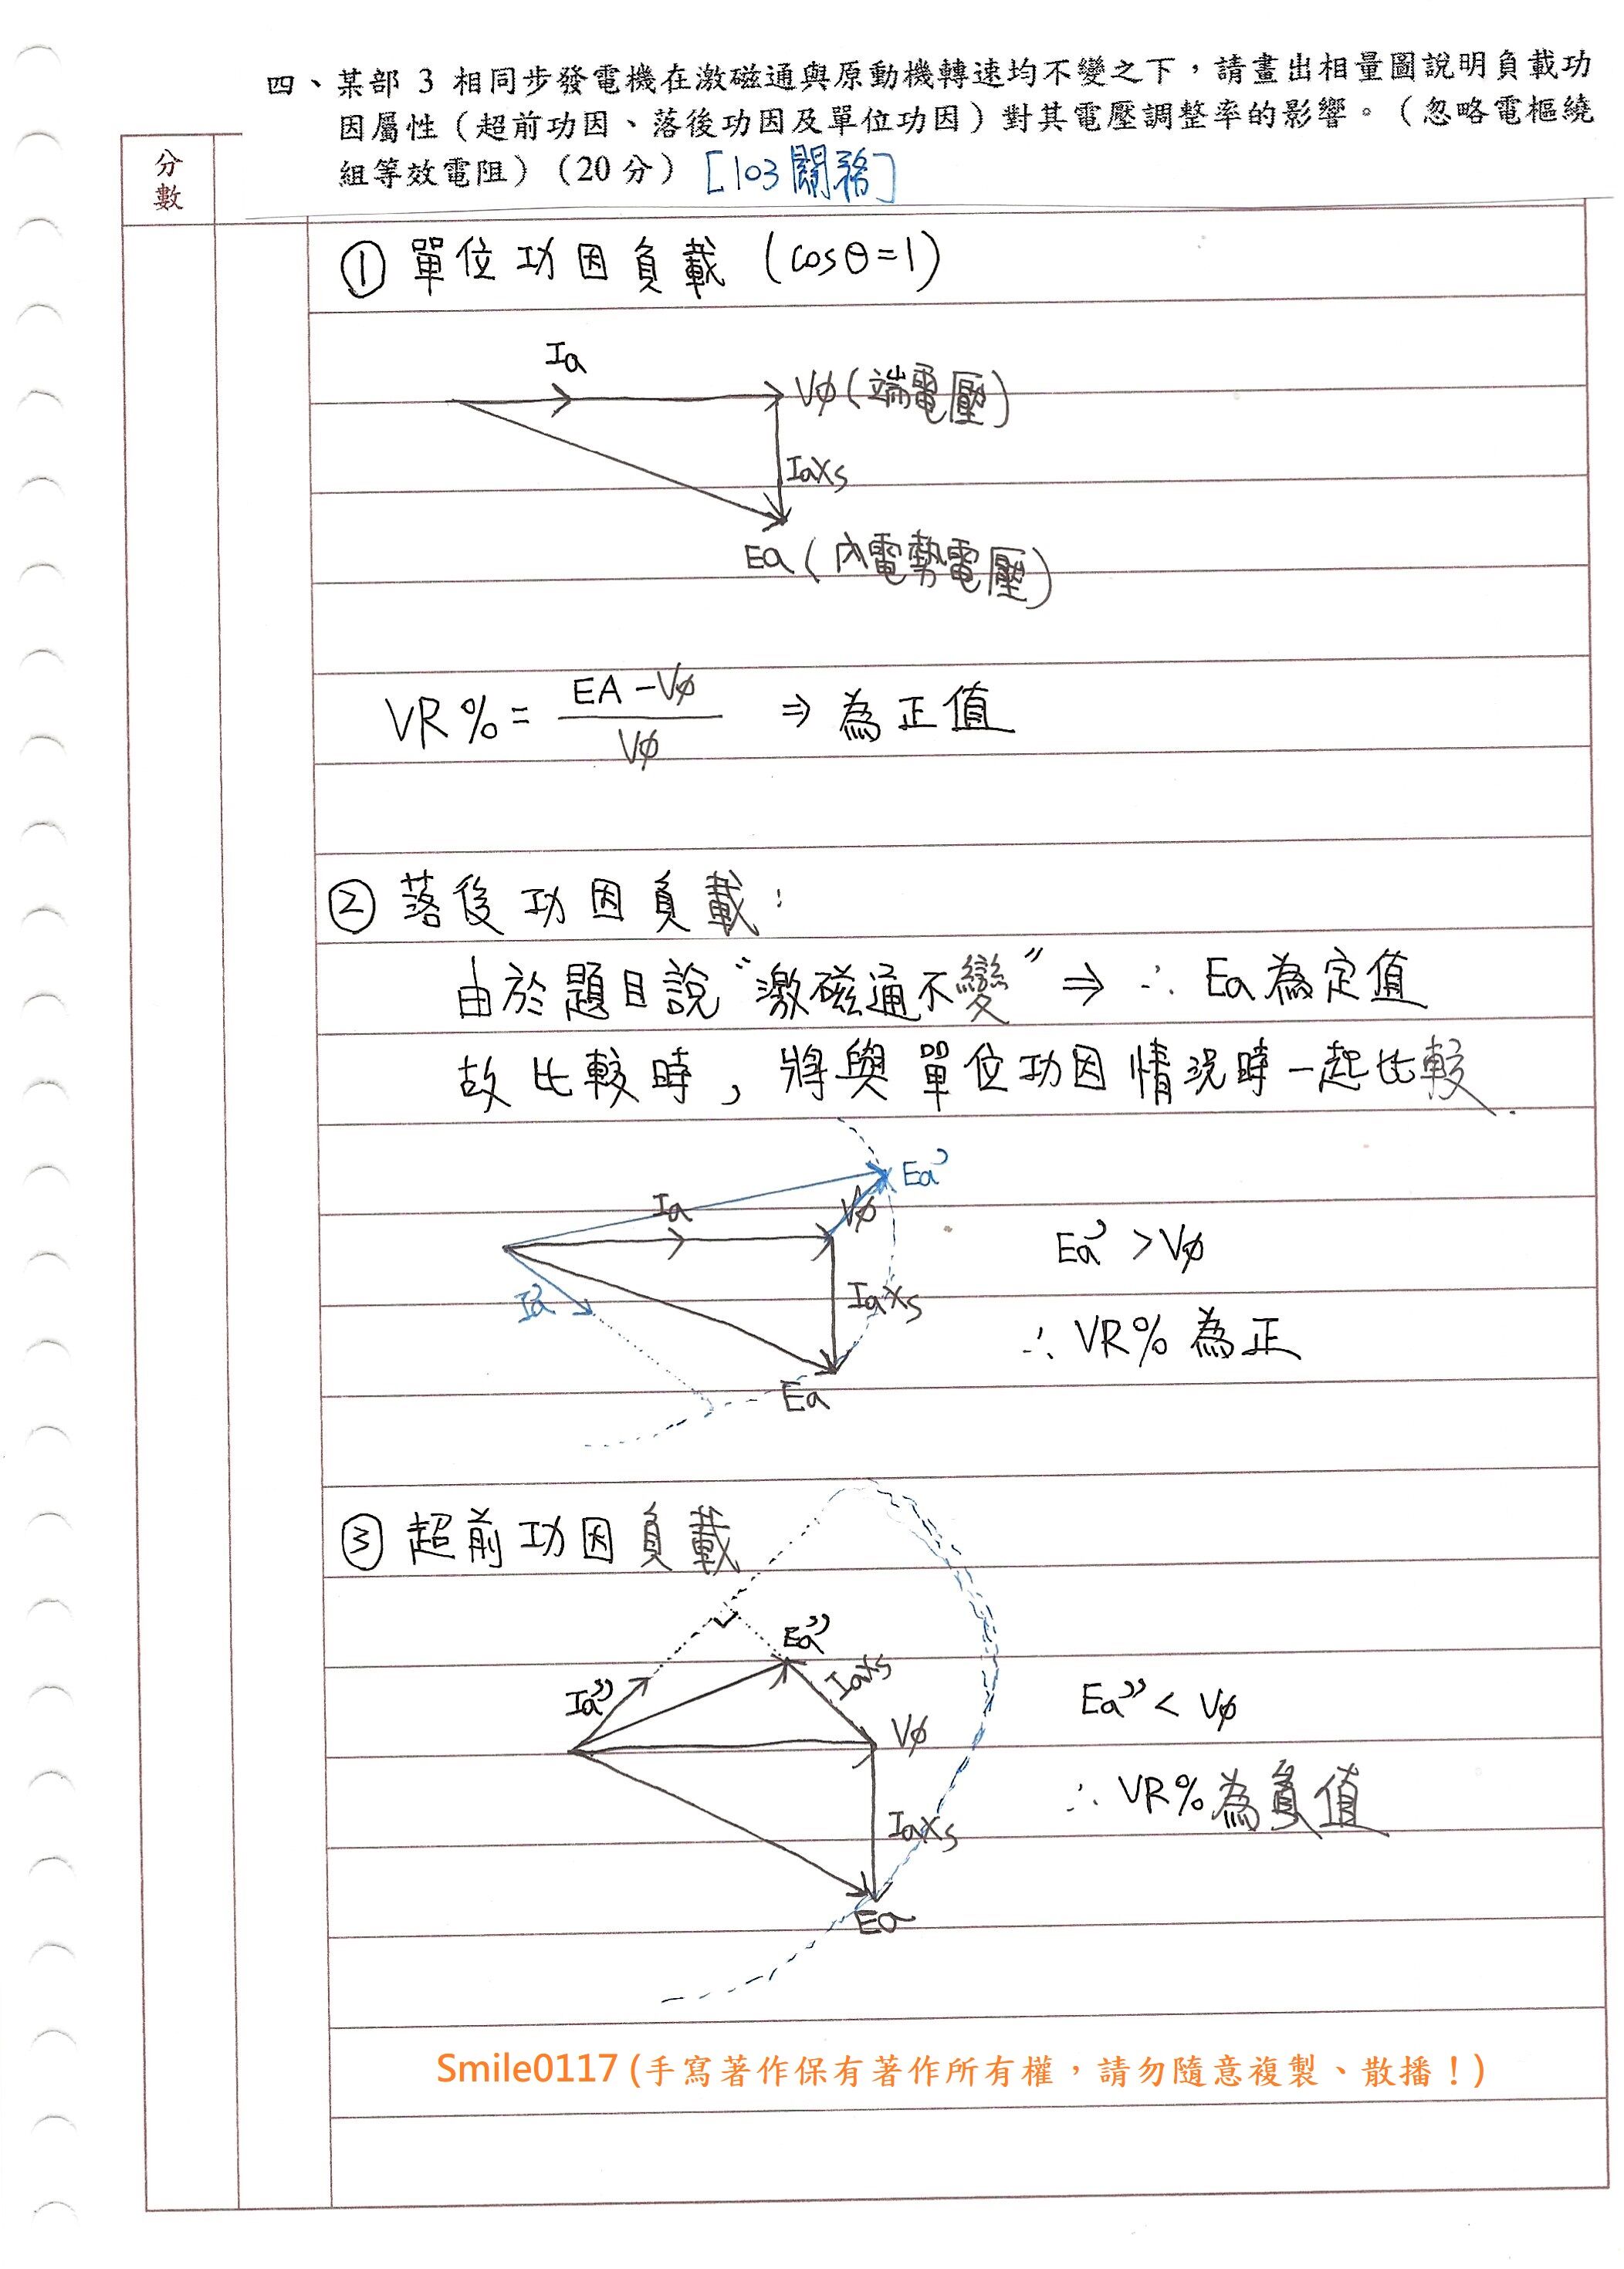 四、某部 3 相同步發電機在激磁通與原動機轉速均不變之下，請畫出相量圖說明負載功
因屬性（超前功因、落後功因及單位功因）對其電壓調整率的影響。（忽略電樞繞
組等效電阻）（20 分） [103關務]
分數
① 單位功因負載 (cosθ=1)
Ia
Vφ (端電壓)
IaXs
Ea (內電勢電壓)
VR% = (EA-Vφ)/Vφ ⇒ 為正值
② 落後功因負載:
由於題目說"激磁通不變" ⇒ ∴ Ea為定值
故比較時，將與單位功因情況時一起比較.
Ea'
Ia
Vφ
Ea' > Vφ
Ia'
IaXs
∴ VR% 為正
Ea
③ 超前功因負載
Ea''
IaXs
Ia''
Ea'' < Vφ
Vφ
∴ VR%為負值
IaXs
Ea
Smile0117 (手寫著作保有著作所有權，請勿隨意複製、散播！)